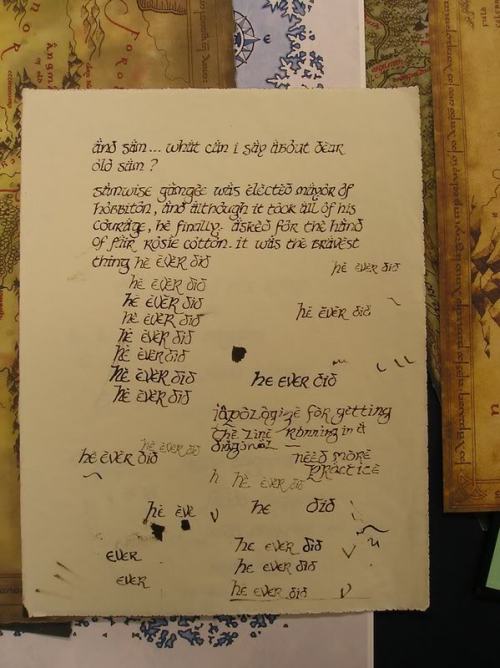 and sam... what can i say about dear
old sam?
samwise gamgee was elected mayor of
hobbiton, and although it took all of his
courage, he finally. asked for the hand
of fair rosie cotton. it was the bravest
thing he ever did
he ever did
he ever did
he ever did
he ever did
he ever did
he ever did
he ever did
he ever did
he ever did
he ever did
he ever did
i apologize for getting
the line running in a
diagonal
need more
practice
he ever did
he ever did
h he ever did
he eve
he did
ever
ever
he ever did
he ever did
he ever did